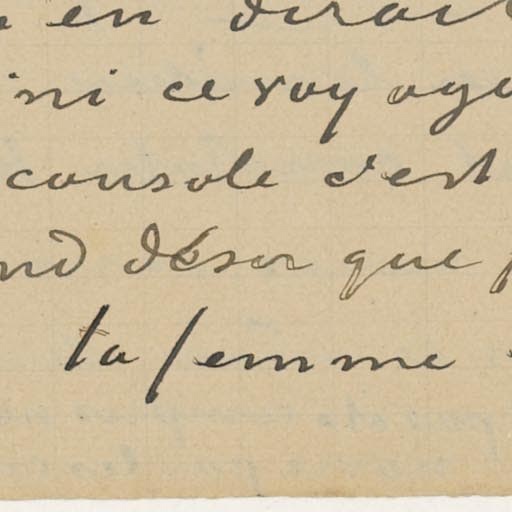 en dirait
ni ce voyage
console c'est
nd déser que
ta femme